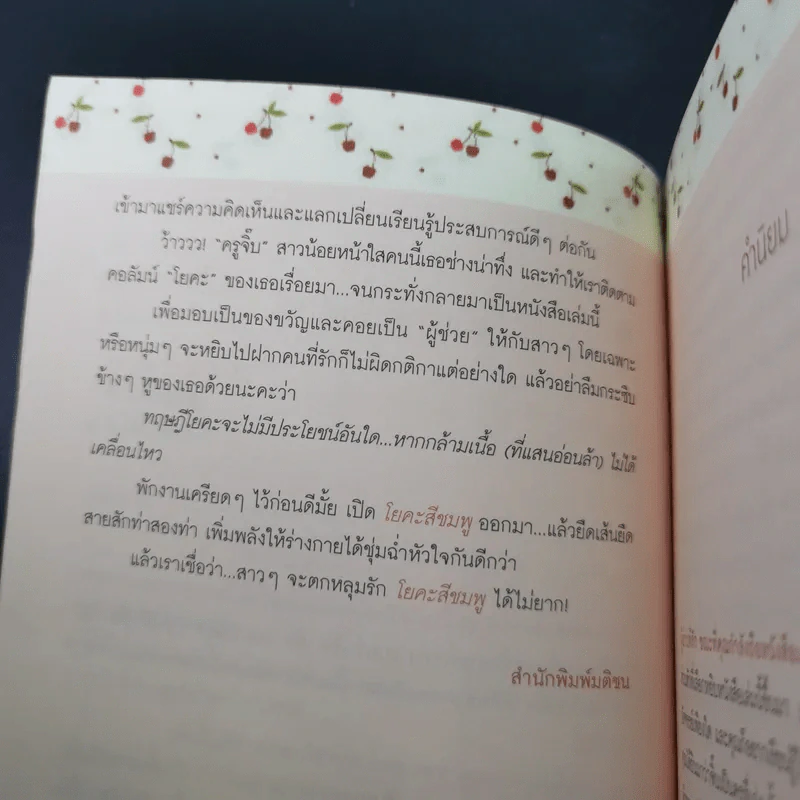 เข้ามาแชร์ความคิดเห็นและแลกเปลี่ยนเรียนรู้ประสบการณ์ดีๆ ต่อกัน
ว้าววว! “ครูจิ๊บ” สาวน้อยหน้าใสคนนี้เธอช่างน่าทึ่ง และทำให้เราติดตาม
คอลัมน์ “โยคะ” ของเธอเรื่อยมา...จนกระทั่งกลายมาเป็นหนังสือเล่มนี้
เพื่อมอบเป็นของขวัญและคอยเป็น “ผู้ช่วย” ให้กับสาวๆ โดยเฉพาะ
หรือหนุ่มๆ จะหยิบไปฝากคนที่รักก็ไม่ผิดกติกาแต่อย่างใด แล้วอย่าลืมกระซิบ
ข้างๆ หูของเธอด้วยนะคะว่า
ทฤษฎีโยคะจะไม่มีประโยชน์อันใด...หากกล้ามเนื้อ (ที่แสนอ่อนล้า) ไม่ได้
เคลื่อนไหว
พักงานเครียดๆ ไว้ก่อนดีมั้ย เปิด โยคะสีชมพู ออกมา...แล้วยืดเส้นยืด
สายสักท่าสองท่า เพิ่มพลังให้ร่างกายได้ชุ่มฉ่ำหัวใจกันดีกว่า
แล้วเราเชื่อว่า...สาวๆ จะตกหลุมรัก โยคะสีชมพู ได้ไม่ยาก!
สำนักพิมพ์มติชน
คำนิยม